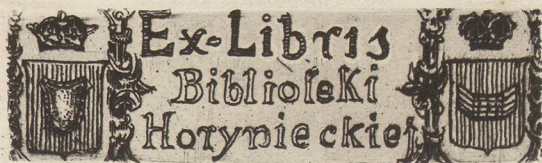 Ex-Libris
Biblioteki
Horynieckiej